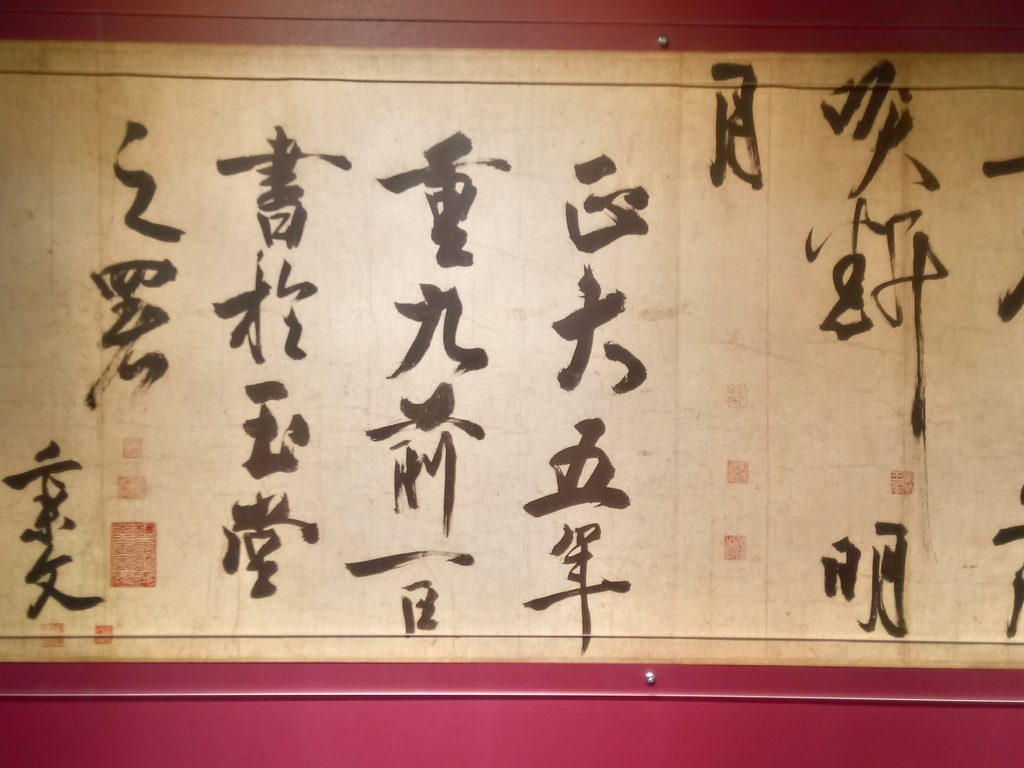 吹斷明
月
正大五年
重九前一日
書於玉堂
之署
秉文